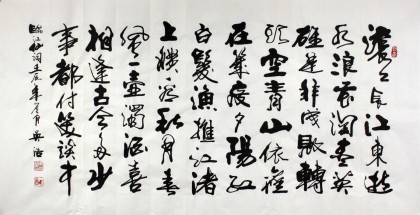 滚滚长江东逝
水浪花淘尽英
雄是非成败转
头空青山依旧
在几度夕阳红
白髮渔樵江渚
上惯看秋月春
风一壶浊酒喜
相逢古今多少
事都付笑谈中
临江仙词壬辰年